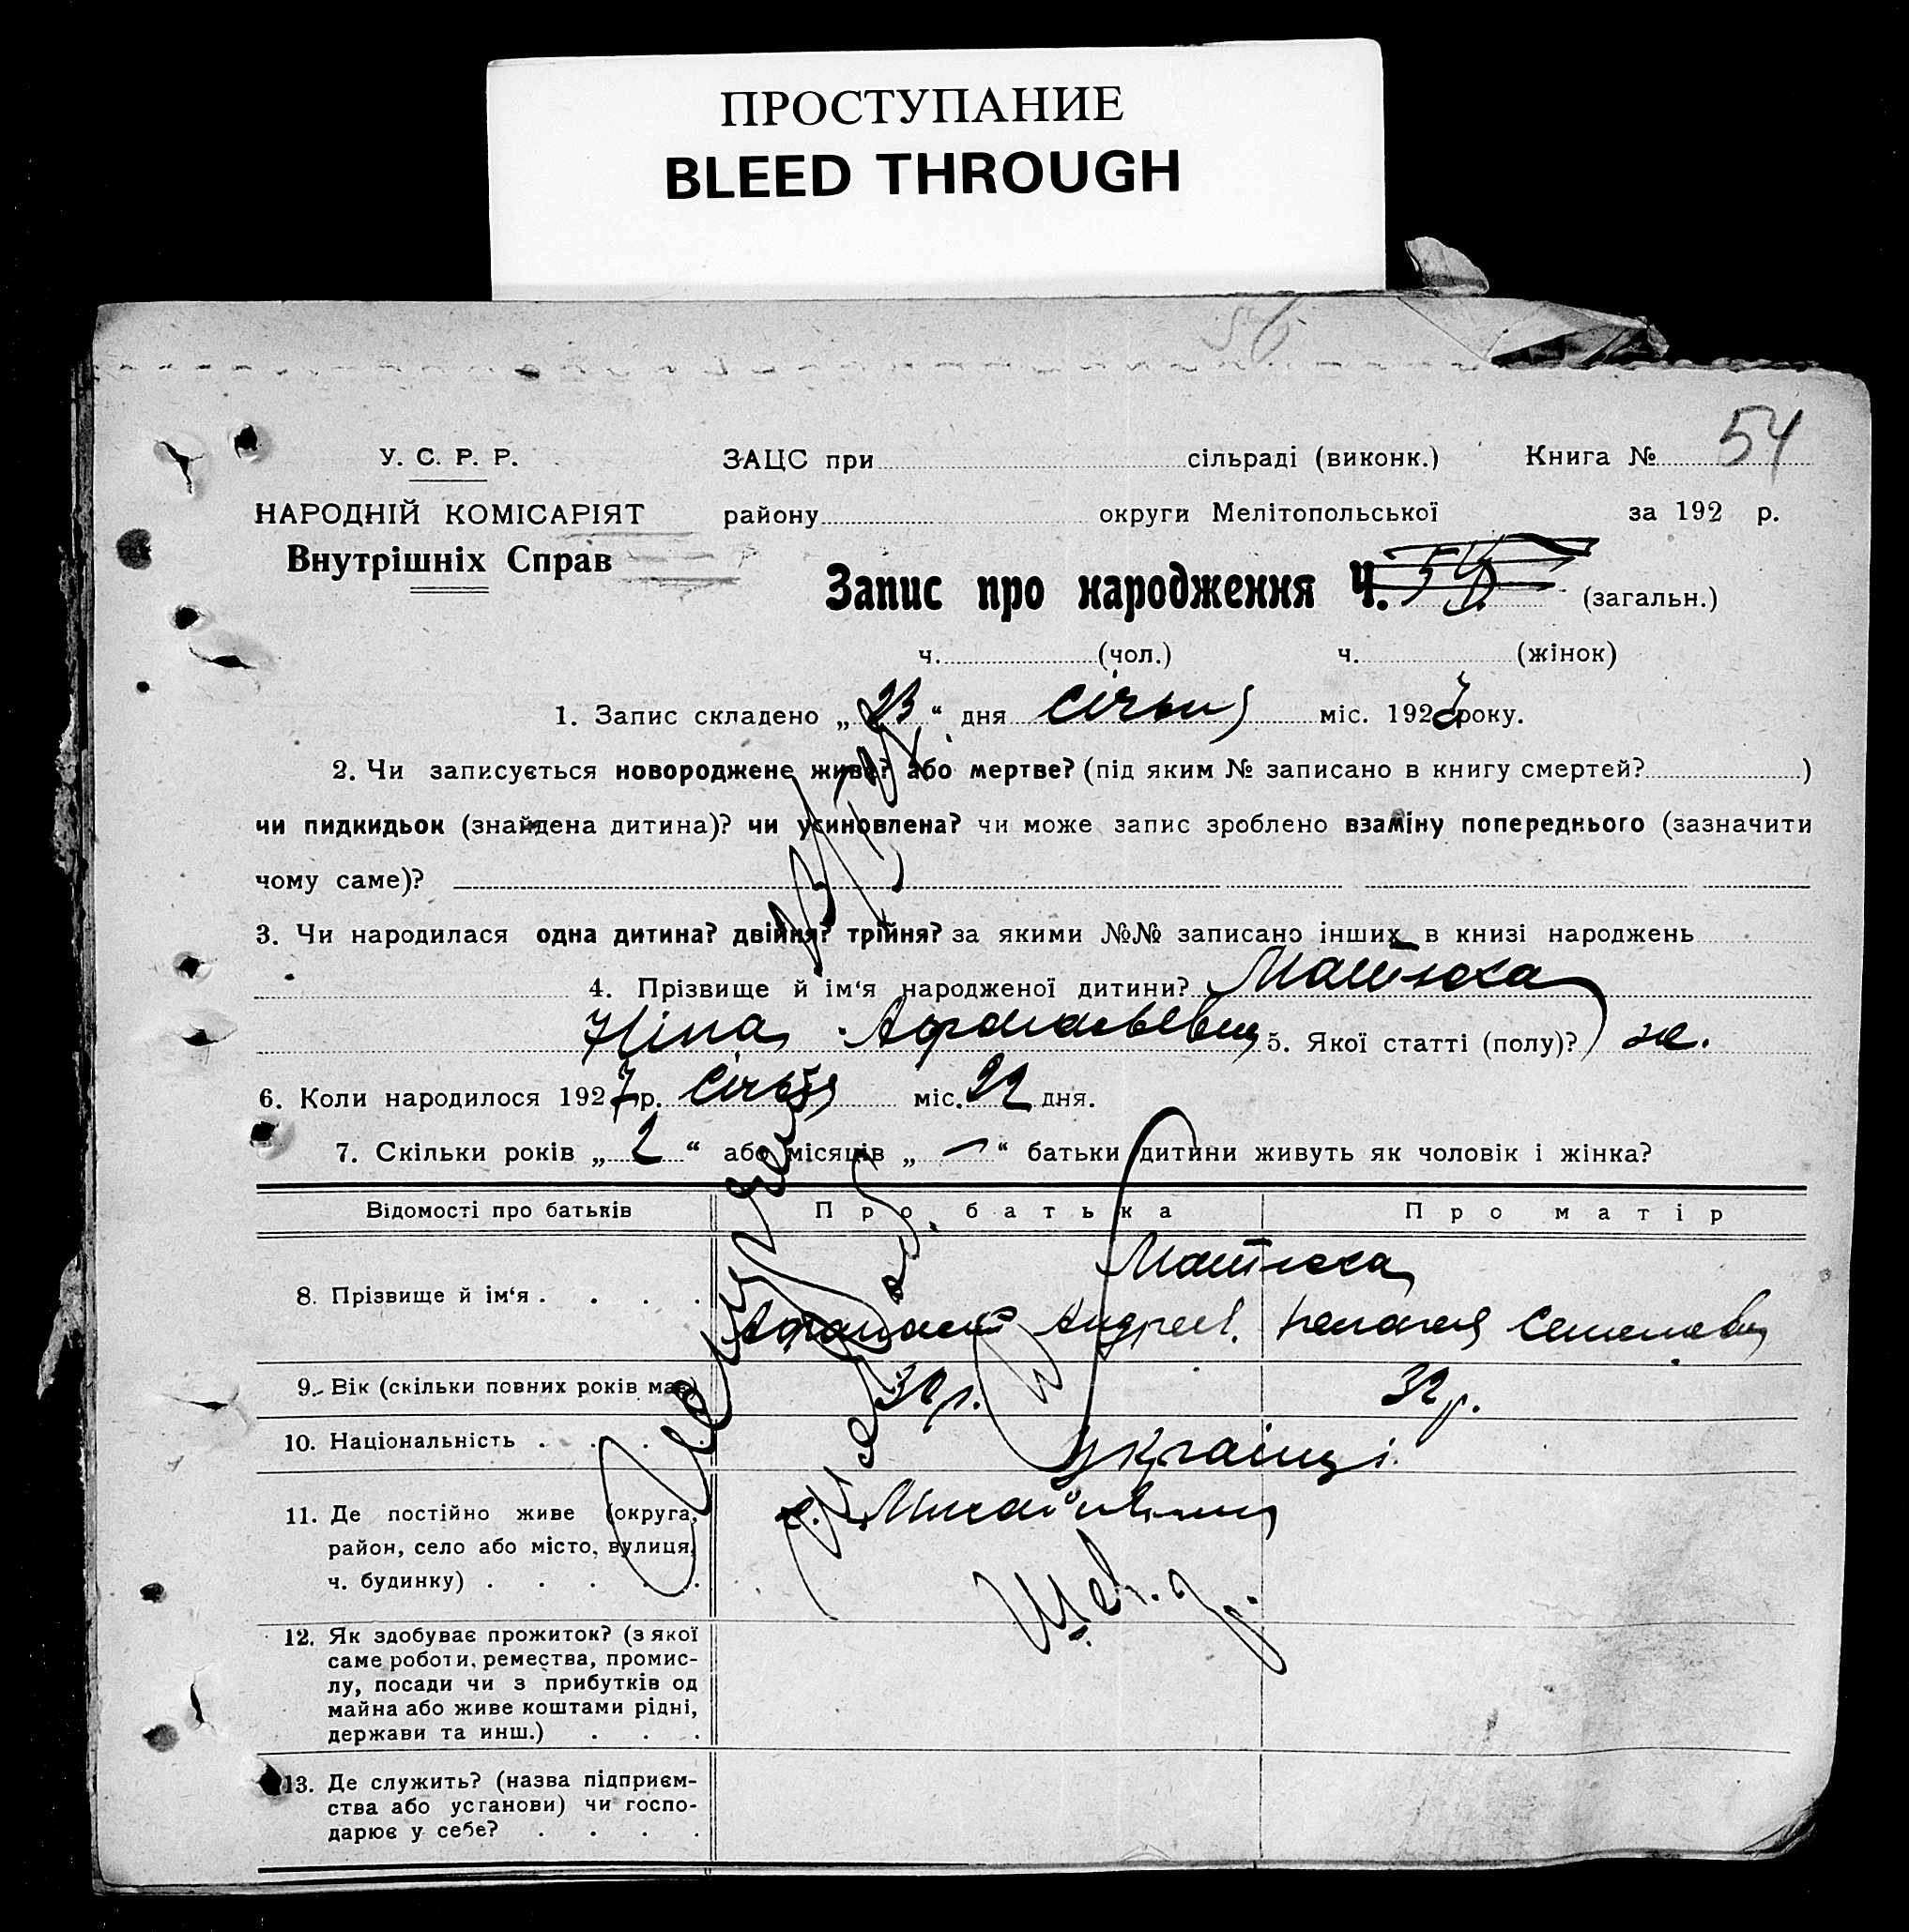 ПРОСТУПАНИЕ
BLEED THROUGH
54
У. С. Р. Р.
ЗАЦС при сільраді (виконк.) Книга №
НАРОДНІЙ КОМІСАРІЯТ
району округи Мелітопольської за 192 р.
Внутрішніх Справ
Запис про народження Ч. 54 (загальн.)
ч. (чол.) ч. (жінок)
1. Запис складено „ 23 “ дня Січня міс. 1927 року.
2. Чи записується новороджене живе? або мертве? (під яким № записано в книгу смертей? )
чи пидкидьок (знайдена дитина)? чи усиновлена? чи може запис зроблено взаміну попереднього (зазначити
чому саме)?
3. Чи народилася одна дитина? двійня? трійня? за якими №№ записано інших в книзі народжень
4. Прізвище й ім‘я народженої дитини? Матюха
Ніна Афанасьевна 5. Якої статті (полу)? ж.
6. Коли народилося 1927 р. Січня міс. 22 дня.
7. Скільки років „ 2 “ або місяців „ — “ батьки дитини живуть як чоловік і жінка?
Відомості про батьків Про батька Про матір
Матюха
8. Прізвище й ім‘я . . . .
Афанасий Андреев. Пелагея Семеновна
9. Вік (скільки повних років має) 30 р. 32 р.
10. Національність . . . . Українці.
11. Де постійно живе (округа, с. Михайлівка
район, село або місто, вулиця,
ч. будинку) . . . . .
12. Як здобуває прожиток? (з якої
саме роботи, ремества, промис-
лу, посади чи з прибутків од
майна або живе коштами рідні,
держави та инш.) . . .
13. Де служить? (назва підприєм-
ства або установи) чи госпо-
дарює у себе? . . . .